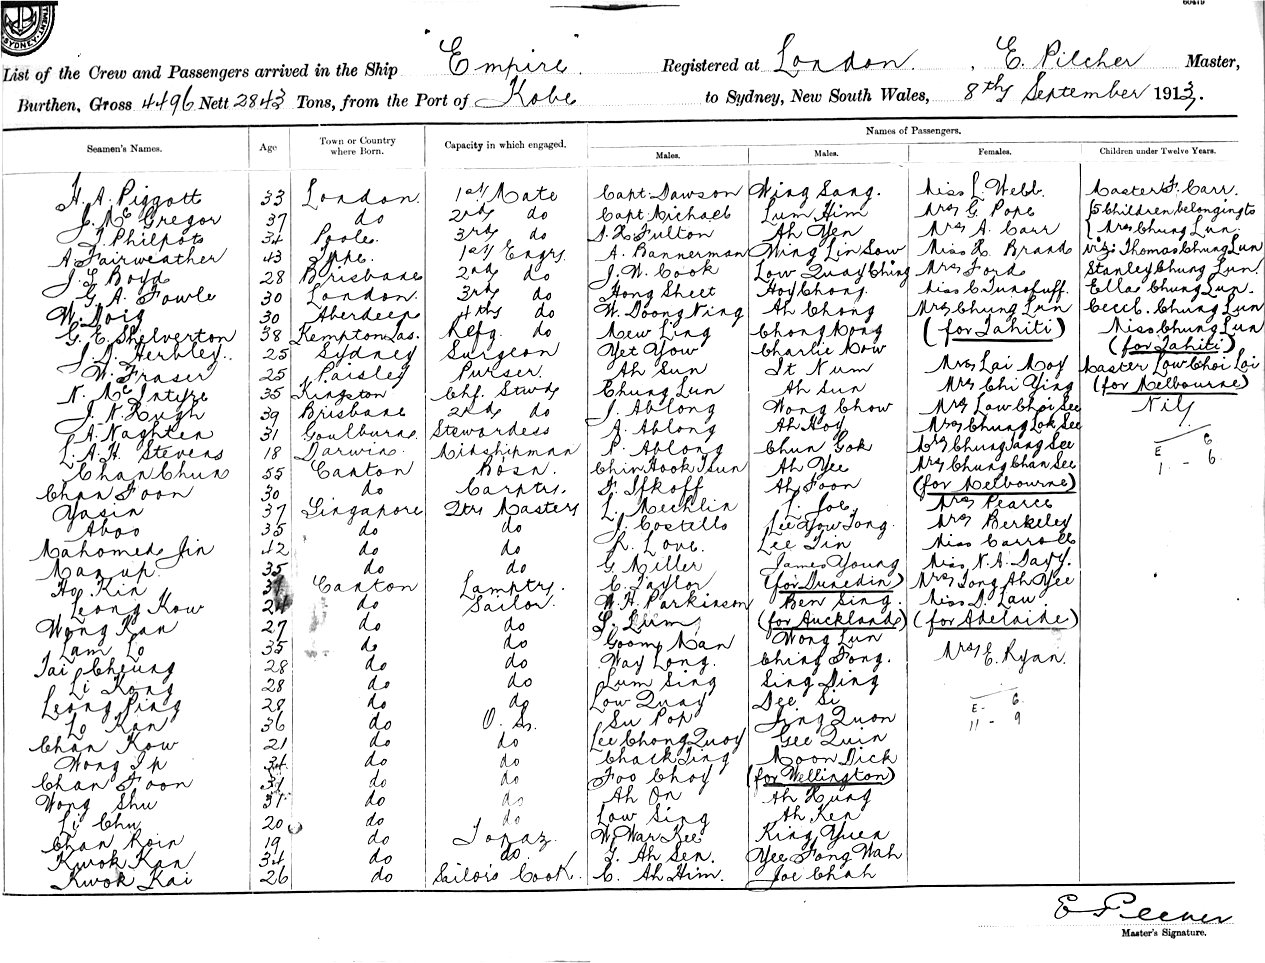 SYDNEY.
60419
List of the Crew and Passengers arrived in the Ship "Empire". Registered at London. E. Pilcher Master,
Burthen, Gross 4496 Nett 2843 Tons, from the Port of Kobe to Sydney, New South Wales, 8th September 1913.
Names of Passengers.
Seamen's Names. Age Town or Country where Born. Capacity in which engaged. Males. Males. Females. Children under Twelve Years.
H. A. Piggott 33 London 1st Mate Capt. Dawson Wing Sang. Miss L. Webb. Master F. Carr.
J. McGregor 37 do 2nd do Capt Michael Lum Him Mrs G. Pope (5 Children belonging to
J. Philpots 34 Poole. 3rd do S. H. Fulton Ah Yen Mrs A. Carr Mrs Chung Lun
A Fairweather 43 1st Engrs. A. Bannerman Wing Lin Sow Miss H. Brand viz: Thomas Chung Lun
J. G. Boyd 28 Brisbane 2nd do J. W. Cook Low Quay Ching Mrs Ford Stanley Chung Lun.
G. A. Fowle 30 London. 3rd do Hong Sheet Hoy Chong. Miss C. Ella Chung Lun.
W. Doig 30 Aberdeen 4th do W. Doong Ning Ah Chong Mrs Chung Lun Cecil. Chung Lun
G. E. Shelverton 38 Kempton Tas. Refg. do Mew Ling Chong Kong (for Tahiti) Miss Chung Lun
J. A. Herbley. 25 Sydney Surgeon Yet Yow Charlie Mow (for Tahiti)
W. Fraser 25 Paisley Purser. Ah Sun It Num Mrs Lai Moy Master Low Choi Loi
N. McIntyre 35 Kingston Chf. Stwd Chung Lun Ah Sun Mrs Chi Ying (for Melbourne)
J. N. Hugh 39 Brisbane 2nd do J. Ablong Wong Chow Mrs Law Choi See Nil
A. Naghten 31 Goulburn Stewardess A. Ablong Ah Hoy Mrs Chung Lok See
L. A. H. Stevens 18 Darwin. Midshipman P. Ablong Chun Gok Mrs Chung Tang See E 6
Chan Chun 55 Canton Bosn. Chin Hook Tsun Ah Yee Mrs Chung Chan See 1 - 6
Chan Foon 30 do Carptr. F. Ifkoff Ah Foon (for Melbourne)
Yasin 37 Singapore Qtr Masters L. Mechlin J. Joe, Mrs Pearce
Aboo 35 do do J. Costello Lee Yow Tong. Mrs Berkeley
Mahomed Jin 42 do do R. Love. Lee Tin Miss Carroll
Manup. 35 do do G. Miller James Young Miss N. A. Davy.
Ho Kin Canton Lamptr. C. Taylor (for Dunedin) Mrs Tong Ah Yee
Leong Kow 24 do Sailor. W. H. Parkinson Ben Sing. Miss D. Law
Wong Kan 27 do do S. Lum, (for Auckland) (for Adelaide)
Lam Lo 35 do do Goomy Man Wong Lun
Tai Cheung 28 do do Way Long. Ching Fong. Mrs E. Ryan.
Li Kong 28 do do Lum Sing Sing Ding
Leong Ping 28 do do Low Quay Dee Si E- 6
Lo Kan 36 do O. S. Su Pop Jing Quon 11 - 9
Chan Kow 21 do do Lee Chong Quoy Gee Quin
Wong Ip 34 do do Chack Ting Moon Dick
Chan Foon 31 do do Foo Choy (for Wellington)
Wong Shu 31 do do Ah On Ah Kung
Li Chu 20 do do Low Sing Ah Ken
Chan Koin 19 do Topaz. W. War Kee King Yuen
Kwok Kan 34 do do. G. Ah Sen. Yee Fong Wah
Kwok Kai 26 do Sailors Cook. C. Ah Him. Joe Chah
E Pilcher
Master's Signature.